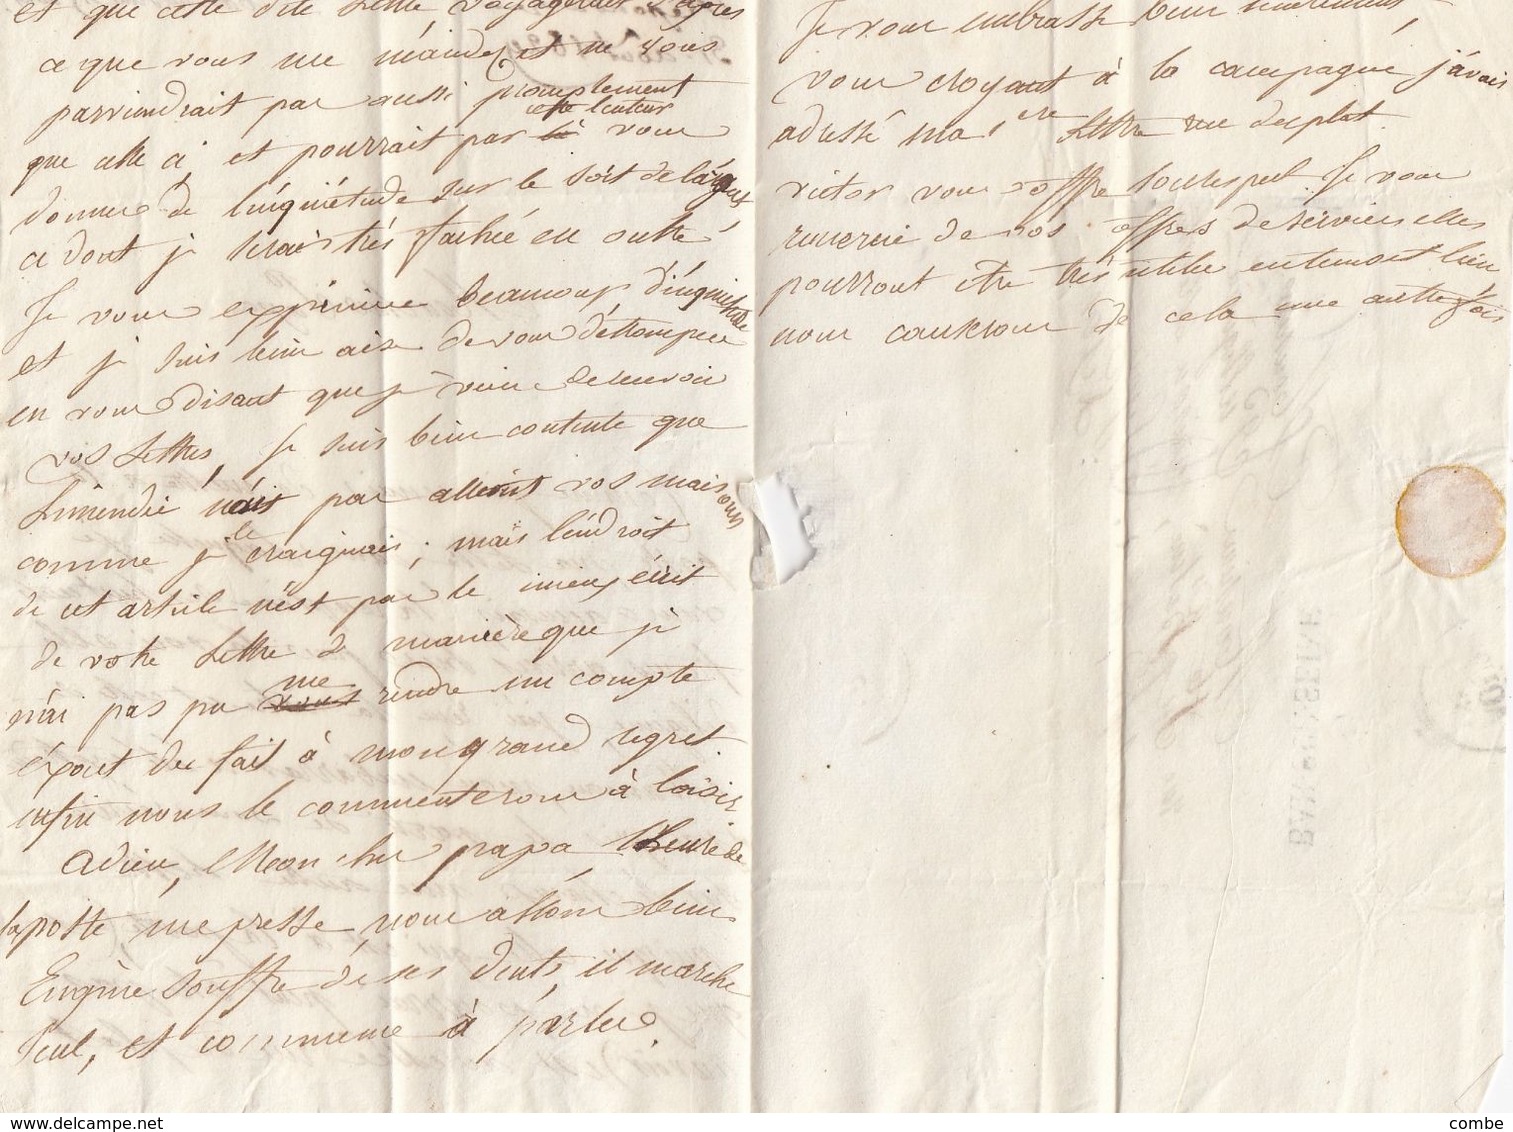 et que cette dite Lettre voyagerait d'après
ce que vous me mandez et ne vous
parviendrait pas aussi promptement
cette lenteur
que celle ci, et pourrait par là vous
donner de l'inquiétude sur le sort de l'argent
ce dont je serais très fachée en outre
Je vous expérime beaucoup d'inquiétude
et je suis bien aise de vous détromper
en vous disant que je viens de recevoir
vos Lettres, Je suis bien contente que
L'incendie n'ais pas atteint vos maisons
comme je le craignais; mais l'endroit
de cet article n'est pas le mieux écrit
de votre Lettre de manière que je
n'ai pas pu vous me rendre un compte
éxact du fait à mon grand regret
enfin nous le commenterons à loisir
Adieu, Mon cher papa l'heure de
la poste me presse, nous allons bien
Eugène souffre de ses dents, il marche
seul, et commence à parler.
Je vous embrasse bien
vous croyant à la campagne j'avais
adressé ma 1ere Lettre rue desplat
victor vous offre son respect Je vous
remercie de vos offres de services elles
pourront être très utiles en temset lieu
nous causerons de cela une autre fois
combe